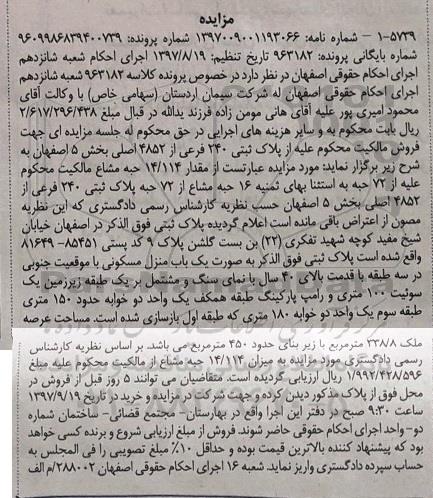 مزایده
۱-۵۷۳۹ - شماره نامه: ۱۳۹۷۰۰۹۰۰۱۱۹۳۰۶۶ شماره پرونده: ۹۶۰۹۹۸۶۸۳۹۴۰۰۷۳۹
شماره بایگانی پرونده: ۹۶۳۱۸۲ تاریخ تنظیم: ۱۳۹۷/۸/۱۹ اجرای احکام شعبه شانزدهم
اجرای احکام حقوقی اصفهان در نظر دارد در خصوص پرونده کلاسه ۹۶۳۱۸۲ شعبه شانزدهم
اجرای احکام حقوقی اصفهان له شرکت سیمان اردستان (سهامی خاص) با وکالت آقای
محمود امیری پور علیه آقای هانی مومن زاده فرزند یدالله در قبال مبلغ ۲/۶۱۷/۲۹۶/۴۳۸
ریال بابت محکوم به و سایر هزینه های اجرایی در حق محکوم له جلسه مزایده ای جهت
فروش مالکیت محکوم علیه از پلاک ثبتی ۲۴۰ فرعی از ۴۸۵۲ اصلی بخش ۵ اصفهان به
شرح زیر برگزار نماید: مورد مزایده عبارتست از مقدار ۱۴/۱۱۴ حبه مشاع مالکیت محکوم
علیه از ۷۲ حبه به استثنا بهای ثمنیه ۱۶ حبه مشاع از ۷۲ حبه پلاک ثبتی ۲۴۰ فرعی از
۴۸۵۲ اصلی بخش ۵ اصفهان حسب نظریه کارشناس رسمی دادگستری که این نظریه
مصون از اعتراض باقی مانده است اعلام گردیده پلاک ثبتی فوق الذکر در اصفهان خیابان
شیخ مفید کوچه شهید تفکری (۲۲) بن بست گلشن پلاک ۹ کد پستی ۸۵۴۵۱- ۸۱۶۴۹
واقع شده است پلاک ثبتی فوق الذکر به صورت یک باب منزل مسکونی با موقعیت جنوبی
در سه طبقه با قدمت بالای ۴۰ سال با نمای سنگ و مشتمل بر یک طبقه زیرزمین یک
سوئیت ۱۰۰ متری و رامپ پارکینگ طبقه همکف یک واحد دو خوابه حدود ۱۵۰ متری
طبقه سوم یک واحد دو خوابه ۱۸۰ متری که طبقه اول بازسازی شده است. مساحت عرصه
ملک ۳۳۸/۸ مترمربع با زیر بنای حدود ۴۵۰ مترمربع می باشد بر اساس نظریه کارشناس
رسمی دادگستری مورد مزایده به میزان ۱۴/۱۱۴ حبه مشاع از مالکیت محکوم علیه مبلغ
۱/۹۹۲/۴۲۸/۵۹۶ ریال ارزیابی گردیده است. متقاضیان می توانند ۵ روز قبل از فروش در
محل فوق از پلاک مذکور دیدن کرده و جهت شرکت در مزایده و خرید در تاریخ ۱۳۹۷/۹/۱۹
ساعت ۹:۳۰ صبح در دفتر این اجرا واقع در بهارستان- مجتمع قضائی- ساختمان شماره
دو-واحد اجرای احکام حقوقی حاضر شوند. فروش از مبلغ ارزیابی شروع و برنده کسی خواهد
بود که پیشنهاد کننده بالاترین قیمت بوده و حداقل ۱۰٪ مبلغ تصویبی را فی المجلس به
حساب سپرده دادگستری واریز نماید. شعبه ۱۶ اجرای احکام حقوقی اصفهان ۲۸۸۰۰۲/م الف